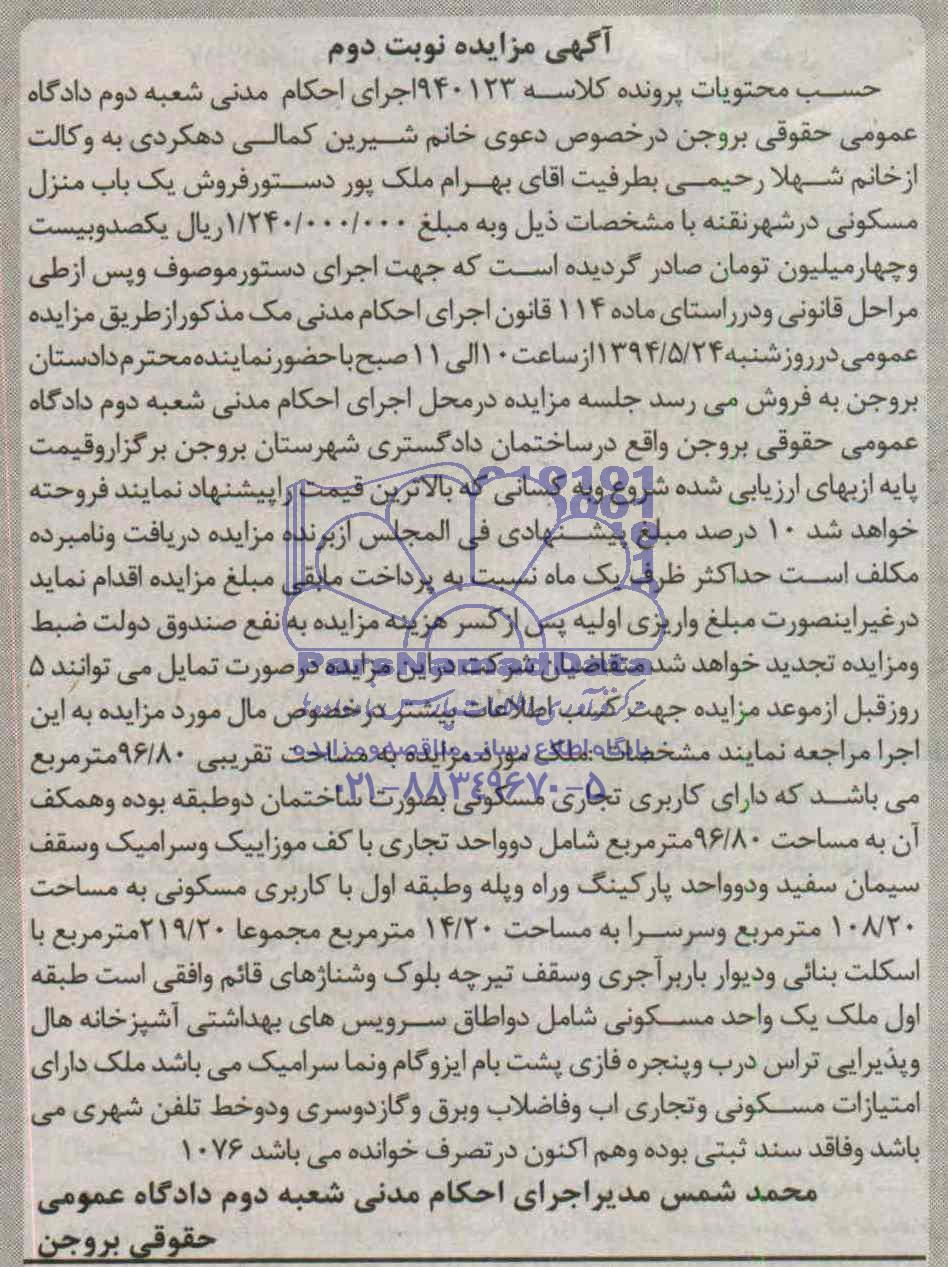 آگهی مزایده نوبت دوم
حسب محتویات پرونده کلاسه ۹۴۰۱۲۳اجرای احکام مدنی شعبه دوم دادگاه
عمومی حقوقی بروجن درخصوص دعوی خانم شیرین کمالی دهکردی به وکالت
ازخانم شهلا رحیمی بطرفیت اقای بهرام ملک پور دستورفروش یک باب منزل
مسکونی درشهرنقنه با مشخصات ذیل وبه مبلغ ۱/۲۴۰/۰۰۰/۰۰۰ریال یکصدوبیست
وچهارمیلیون تومان صادر گردیده است که جهت اجرای دستورموصوف وپس ازطی
مراحل قانونی ودرراستای ماده ۱۱۴ قانون اجرای احکام مدنی مک مذکورازطریق مزایده
عمومی درروزشنبه۱۳۹۴/۵/۲۴ازساعت۱۰الی۱۱صبح باحضورنماینده محترم دادستان
بروجن به فروش می رسد جلسه مزایده درمحل اجرای احکام مدنی شعبه دوم دادگاه
عمومی حقوقی بروجن واقع درساختمان دادگستری شهرستان بروجن برگزاروقیمت
پایه ازبهای ارزیابی شده شروع وبه کسانی که بالاترین قیمت راپیشنهاد نمایند فروحته
خواهد شد ۱۰ درصد مبلغ پیشنهادی فی المجلس ازبرنده مزایده دریافت ونامبرده
مکلف است حداکثر ظرف یک ماه نسبت به پرداخت مابقی مبلغ مزایده اقدام نماید
درغیراینصورت مبلغ واریزی اولیه پس ازکسر هزینه مزایده به نفع صندوق دولت ضبط
ومزایده تجدید خواهد شد متقاضیان شرکت دراین مزایده درصورت تمایل می توانند ۵
ParsNamadData
روزقبل ازموعد مزایده جهت کسب اطلاعات بیشتر درخصوص مال مورد مزایده به این
اجرا مراجعه نمایند مشخصات :ملک مورد مزایده به مساحت تقریبی ۹۶/۸۰مترمربع
پایگاه اطلاع رسانی مناقصه و مزایده
می باشد که دارای کاربری تجاری مسکونی بصورت ساختمان دوطبقه بوده وهمکف
۰۲۱-۸۸۳۴۹۶۷۰-۵
آن به مساحت ۹۶/۸۰مترمربع شامل دوواحد تجاری با کف موزاییک وسرامیک وسقف
سیمان سفید ودوواحد پارکینگ وراه وپله وطبقه اول با کاربری مسکونی به مساحت
۱۰۸/۲۰ مترمربع وسرسرا به مساحت ۱۴/۲۰ مترمربع مجموعا ۲۱۹/۲۰مترمربع با
اسکلت بنائی ودیوار باربرآجری وسقف تیرچه بلوک وشناژهای قائم وافقی است طبقه
اول ملک یک واحد مسکونی شامل دواطاق سرویس های بهداشتی آشپزخانه هال
وپذیرایی تراس درب وپنجره فازی پشت بام ایزوگام ونما سرامیک می باشد ملک دارای
امتیازات مسکونی وتجاری اب وفاضلاب وبرق وگازدوسری ودوخط تلفن شهری می
باشد وفاقد سند ثبتی بوده وهم اکنون درتصرف خوانده می باشد ۱۰۷۶
محمد شمس مدیراجرای احکام مدنی شعبه دوم دادگاه عمومی
حقوقی بروجن